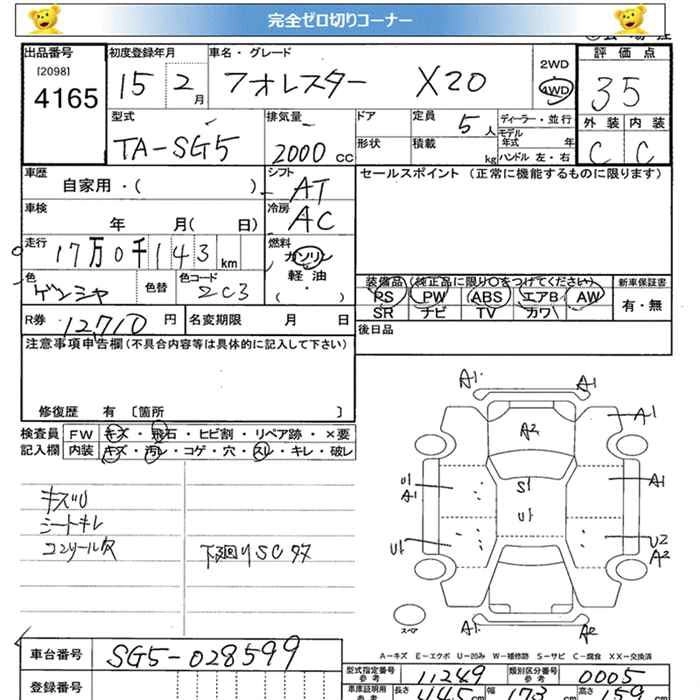 完全ゼロ切りコーナー
出品番号 初度登録年月 車名・グレード 2WD 評価点
[2098] 4165 15 2月 フォレスター X20 4WD 35
型式 排気量 ドア 定員 5人 ディーラー・並行 外装 内装
TA-SG5 2000cc 形状 積載 kg モデル年式 年 C C
ハンドル 左・右
車歴 シフト セールスポイント (正常に機能するものに限ります)
自家用・( ) AT
車検 冷房
年 月( 日) AC
走行 燃料
17万0千143km ガソリン
色 色替 色コード 軽油 装備品 (純正品に限り○をつけてください) 新車保証書
ゲンシャ 2C3 ( ・ ) PS PW ABS エアB AW 有・無
SR ナビ TV カワ
R券 12710円 名変期限 月 日 後日品
注意事項申告欄(不具合内容等は具体的に記入して下さい)
修復歴 有 〔箇所 〕
検査員 FW キズ・飛石・ヒビ割・リペア跡・×要
記入欄 内装 キズ・汚レ・コゲ・穴・スレ・キレ・破レ
A1 A1
A1
A2
A1 S1 A1
キズU
シートキレ
コンソール欠
下廻りSCサス
U2
A2
スペア
A1 A2
A-キズ E-エクボ U-凹み W-補修跡 S-サビ C-腐食 XX-交換済
車台番号 SG5-028599
型式指定番号 参考 11249 類別区分番号 参考 0005
登録番号
車庫証明用 参考 長さ 445cm 幅 173cm 高さ 159cm